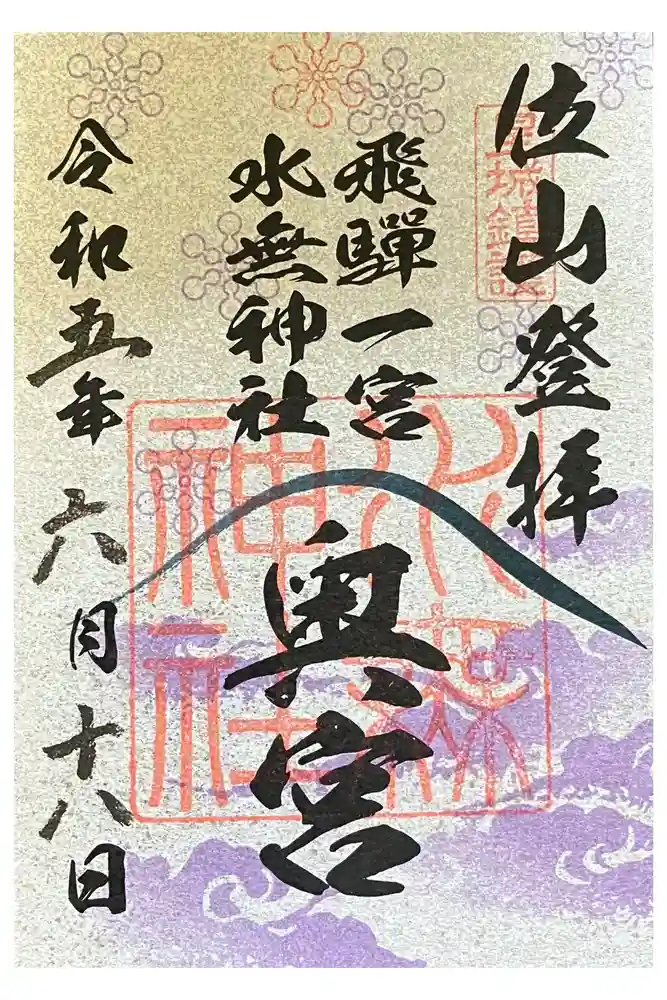 位山登拝
皇城鎮護
飛騨一宮
水無神社
奥宮
水無神社
令和五年六月十八日